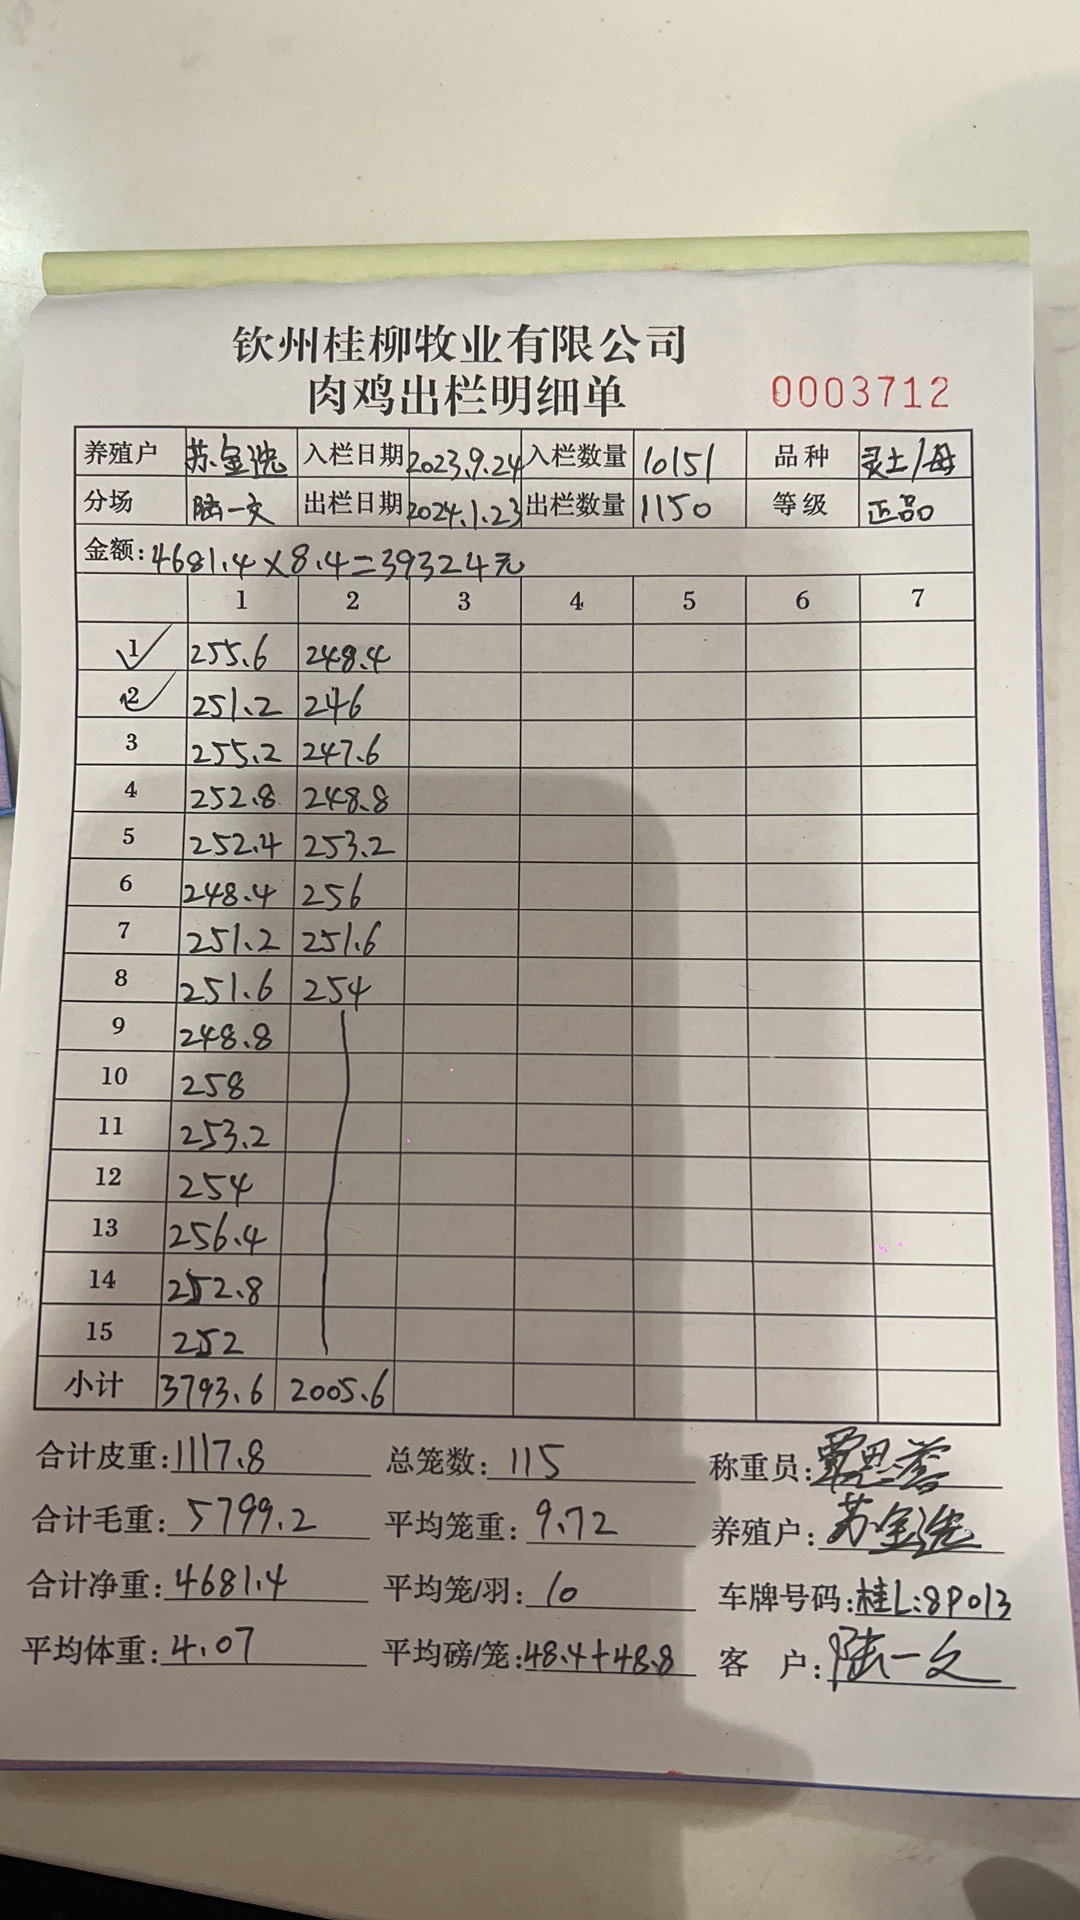 钦州桂柳牧业有限公司
肉鸡出栏明细单 0003712
养殖户 苏金 入栏日期 2023.9.24 入栏数量 10151 品种 灵土/母
分场 陆一文 出栏日期 2024.1.23 出栏数量 1150 等级 正品
金额: 4681.4×8.4=39324元
1 2 3 4 5 6 7
1 255.6 248.4
2 251.2 246
3 255.2 247.6
4 252.8 248.8
5 252.4 253.2
6 248.4 256
7 251.2 251.6
8 251.6 254
9 248.8
10 258
11 253.2
12 254
13 256.4
14 252.8
15 252
小计 3793.6 2005.6
合计皮重: 1117.8 总笼数: 115 称重员:
合计毛重: 5799.2 平均笼重: 9.72 养殖户: 苏金
合计净重: 4681.4 平均笼/羽: 10 车牌号码: 桂L:8P013
平均体重: 4.07 平均磅/笼: 48.4+48.8 客户: 陆一文